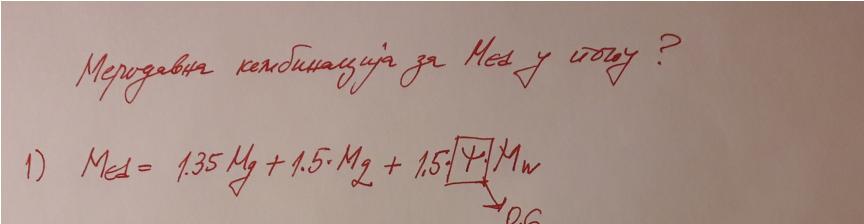 Меродавна комбинација за Med у пољу ?
1) Med = 1.35 Mg + 1.5· Mq + 1.5· Ψ· Mw
0.6